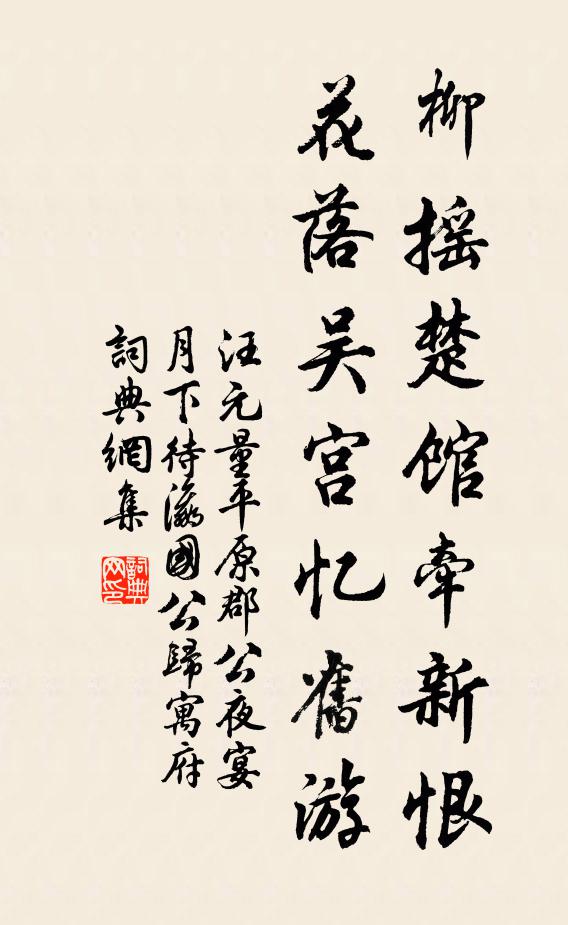 柳摇楚馆牵新恨
花落吴宫忆舊游
汪元量平原郡公夜宴
月下待瀛國公歸寓府
詞典網集
詞典网印